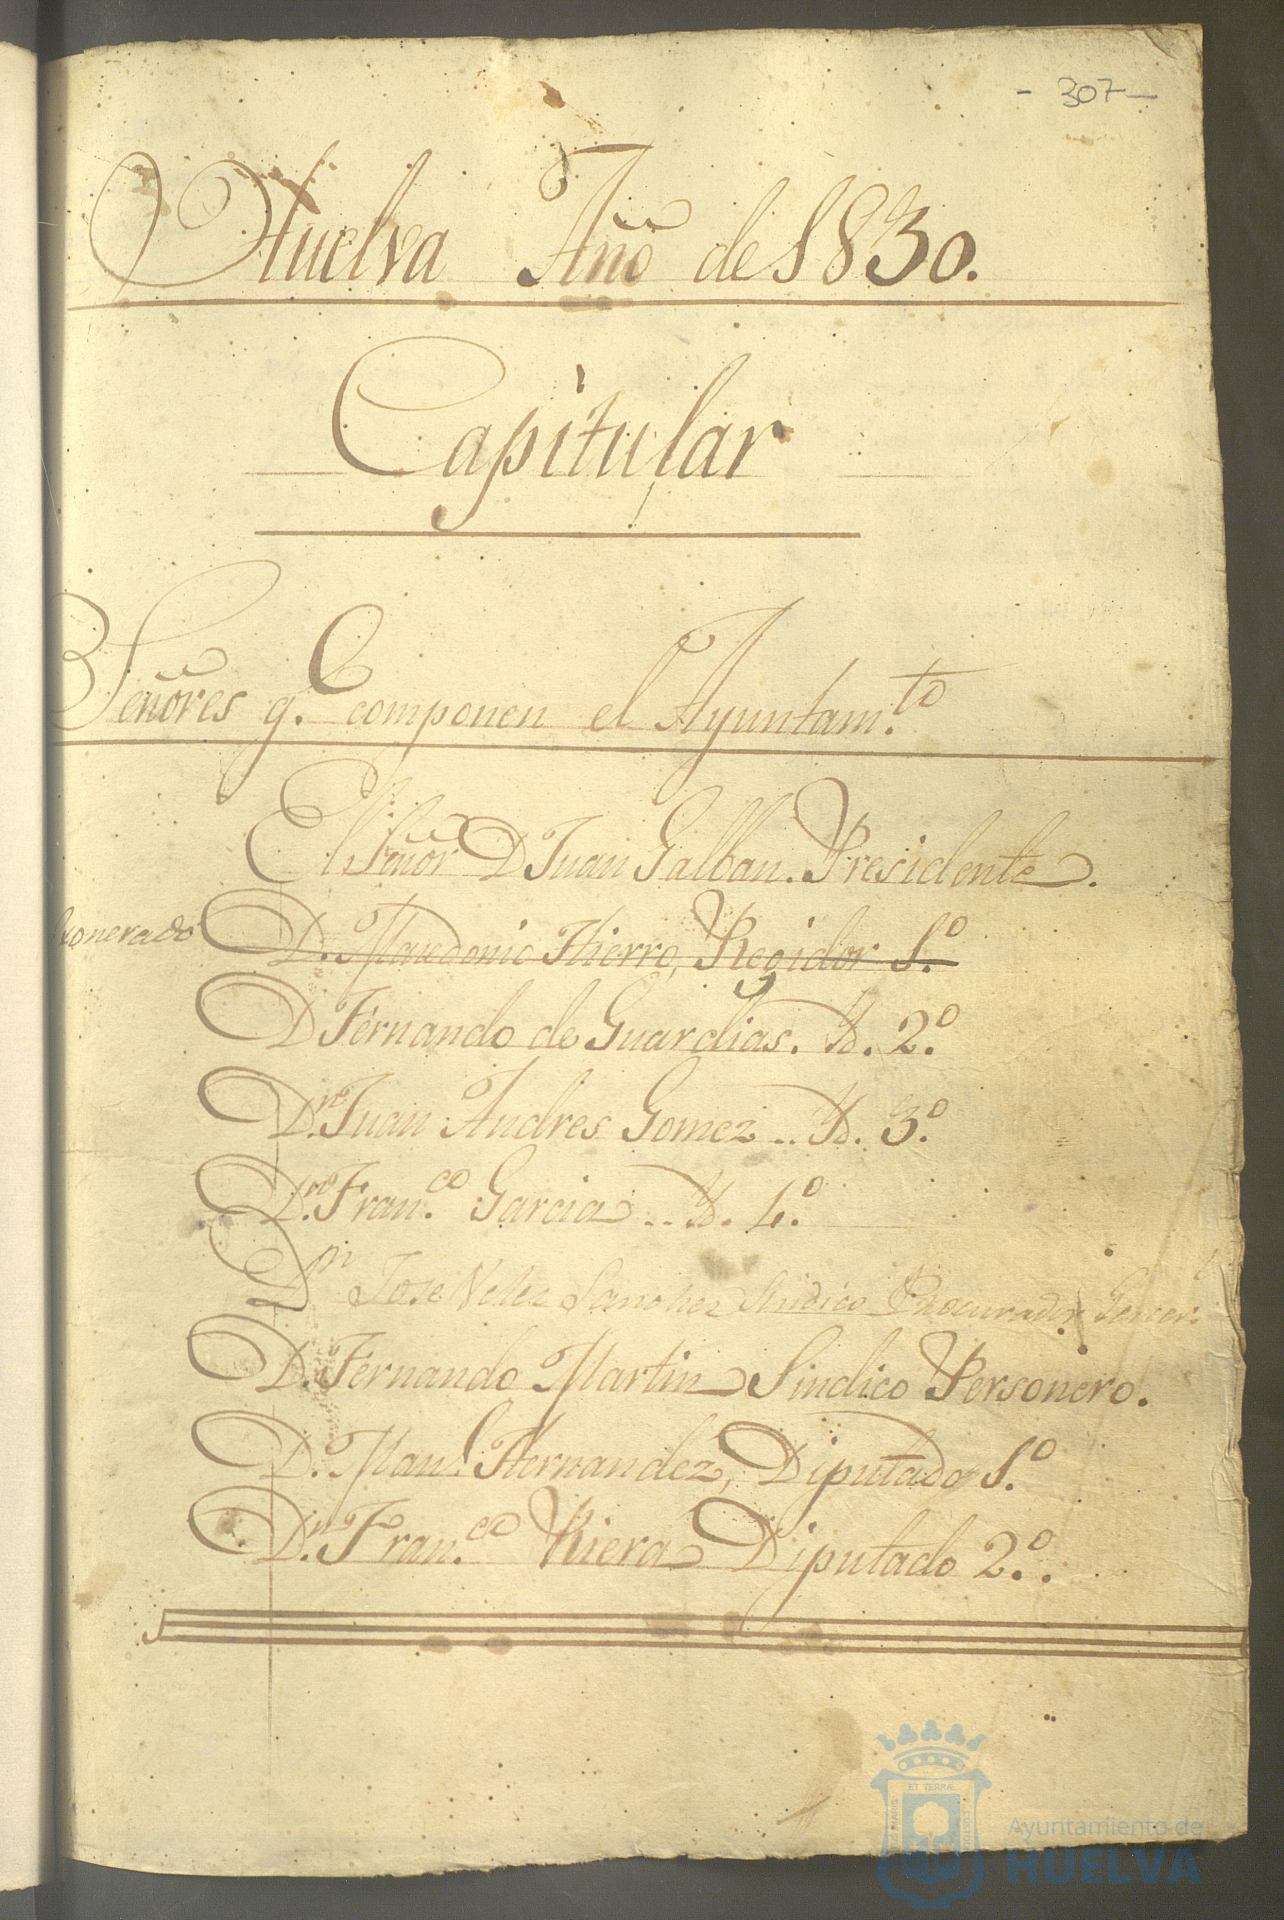 - 307 -
Huelva Año de 1830.
Capitular
Señores q.e componen el Ayuntam.to
El Señor D Juan Galban. Presidente.
Exonerado D. Macedonio Hierro, Regidor 1.º
D Fernando de Guardias. Yd. 2.º
D.n Juan Andres Gomez .. Yd. 3.º
D.n Fran.co Garcia .. Yd. 4.º
Dn Jose Velez Sanchez Sindico Procurador
D. Fernando Martin Sindico Personero.
D. Man.l Hernandez, Diputado 1.º
D.n Fran.co Riera Diputado 2.º.
ET TERRÆ
Ayuntamiento de
HUELVA